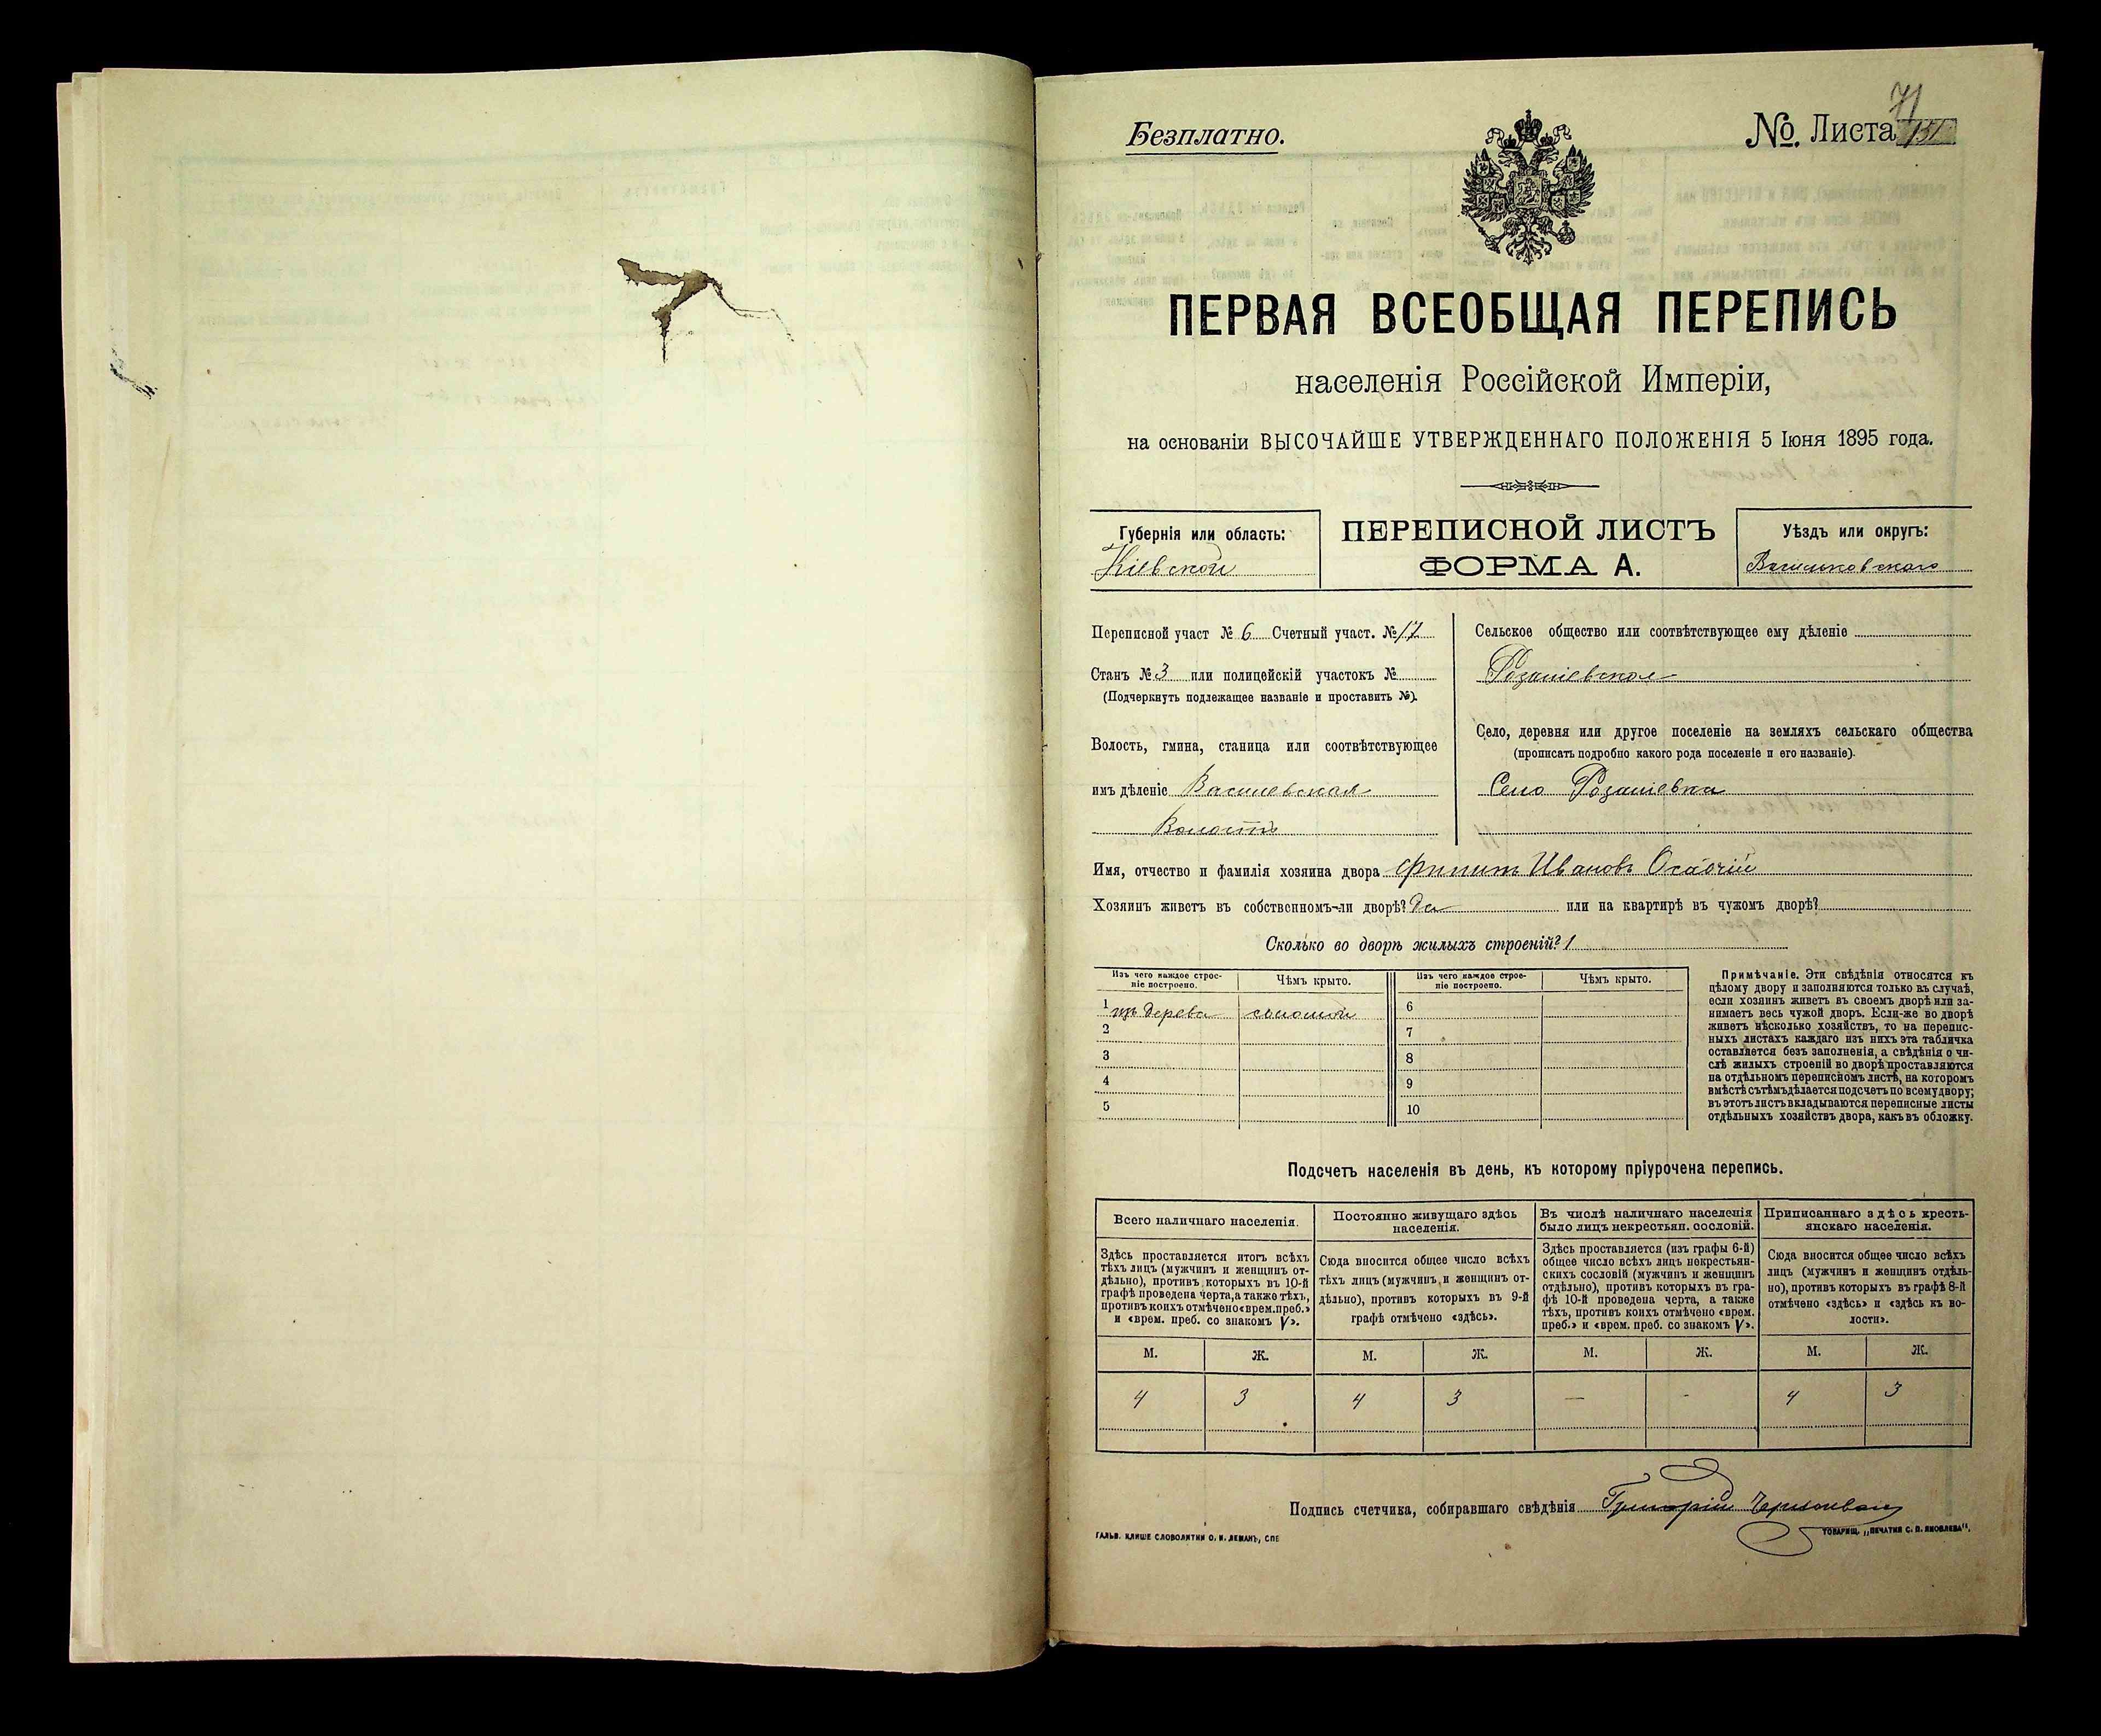 Безплатно.
71
№. Листа 151
ПЕРВАЯ ВСЕОБЩАЯ ПЕРЕПИСЬ
населенія Россійской Имперіи,
на основаніи ВЫСОЧАЙШЕ УТВЕРЖДЕННАГО ПОЛОЖЕНІЯ 5 Іюня 1895 года.
Губернія или область:
Кіевской
ПЕРЕПИСНОЙ ЛИСТЪ
ФОРМА А.
Уѣздъ или округъ:
Переписной участ № 6 Счетный участ. № 17
Станъ № 3 или полицейскій участокъ №
(Подчеркнуть подлежащее названіе и проставить №).
Волость, гмина, станица или соотвѣтствующее
имъ дѣленіе Василевская
Волость
Сельское общество или соотвѣтствующее ему дѣленіе
Розаліевское
Село, деревня или другое поселеніе на земляхъ сельскаго общества
(прописать подробно какого рода поселеніе и его названіе).
Село Розаліевка
Имя, отчество и фамилія хозяина двора Филипъ Ивановъ Осадчій
Хозяинъ живетъ въ собственномъ-ли дворѣ? Да или на квартирѣ въ чужомъ дворѣ?
Сколько во дворѣ жилыхъ строеній? 1
Изъ чего каждое строе-
ніе построено.
Чѣмъ крыто.
Изъ чего каждое строе-
ніе построено.
Чѣмъ крыто.
1 изъ дерева соломой 6
2 7
3 8
4 9
5 10
Примѣчаніе. Эти свѣдѣнія относятся къ
цѣлому двору и заполняются только въ случаѣ,
если хозяинъ живетъ въ своемъ дворѣ или за-
нимаетъ весь чужой дворъ. Если-же во дворѣ
живетъ нѣсколько хозяйствъ, то на перепис-
ныхъ листахъ каждаго изъ нихъ эта табличка
оставляется безъ заполненія, а свѣдѣнія о чи-
слѣ жилыхъ строеній во дворѣ проставляются
на отдѣльномъ переписномъ листѣ, на которомъ
вмѣстѣ съ тѣмъ дѣлается подсчетъ по всему двору;
въ этотъ листъ вкладываются переписные листы
отдѣльныхъ хозяйствъ двора, какъ въ обложку.
Подсчетъ населенія въ день, къ которому пріурочена перепись.
Всего наличнаго населенія.
Здѣсь проставляется итогъ всѣхъ
тѣхъ лицъ (мужчинъ и женщинъ от-
дѣльно), противъ которыхъ въ 10-й
графѣ проведена черта, а также тѣхъ,
противъ коихъ отмѣчено «врем. преб.»
и «врем. преб. со знакомъ V».
Постоянно живущаго здѣсь
населенія.
Сюда вносится общее число всѣхъ
тѣхъ лицъ (мужчинъ и женщинъ от-
дѣльно), противъ которыхъ въ 9-й
графѣ отмѣчено «здѣсь».
Въ числѣ наличнаго населенія
было лицъ некрестьян. сословій.
Здѣсь проставляется (изъ графы 6-й)
общее число всѣхъ лицъ некрестьян-
скихъ сословій (мужчинъ и женщинъ
отдѣльно), противъ которыхъ въ гра-
фѣ 10-й проведена черта, а также
тѣхъ, противъ коихъ отмѣчено «врем.
преб.» и «врем. преб. со знакомъ V».
Приписаннаго здѣсь кресть-
янскаго населенія.
Сюда вносится общее число всѣхъ
лицъ (мужчинъ и женщинъ отдѣль-
но), противъ которыхъ въ графѣ 8-й
отмѣчено «здѣсь» и «здѣсь къ во-
лости».
М. Ж. М. Ж. М. Ж. М. Ж.
4 3 4 3 — - 4 3
Подпись счетчика, собиравшаго свѣдѣнія Григорій
ГАЛЬВ. КЛИШЕ СЛОВОЛИТНИ О. И. ЛЕМАНЪ, СПБ
ТОВАРИЩ. „ПЕЧАТНЯ С. П. ЯКОВЛЕВА".